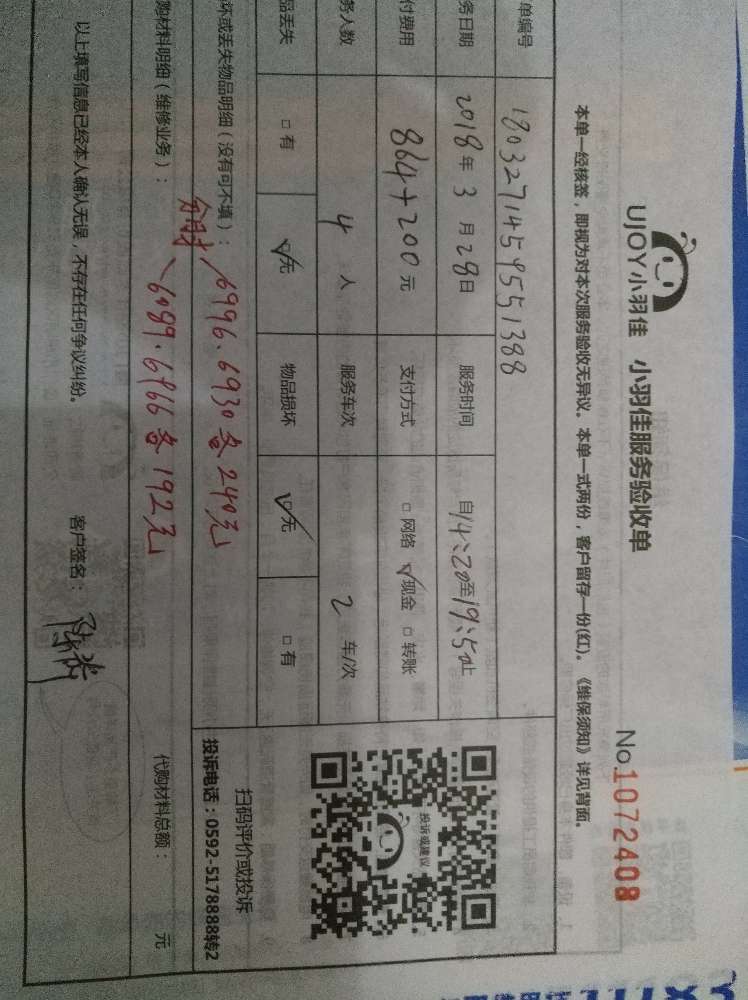 UJOY小羽佳 小羽佳服务验收单
No.1072408
本单一经核签，即视为对本次服务验收无异议。本单一式两份，客户留存一份(红)。《维保须知》详见背面。
单编号 1803271459551388
务日期 2018年3月28日 服务时间 自14:20至19:50止
付费用 864+200元 支付方式 □网络 ☑现金 □转账
务人数 4人 服务车次 2车/次
品丢失 □有 ☑无 物品损坏 ☑无 □有
坏或丢失物品明细（没有可不填）：
分财 6996.6930各240元
6089.6966各192元
购材料明细（维修业务）：
代购材料总额： 元
以上填写信息已经本人确认无误，不存在任何争议纠纷。 客户签名：
投诉或建议
扫码评价或投诉
投诉电话：0592-5178888转2